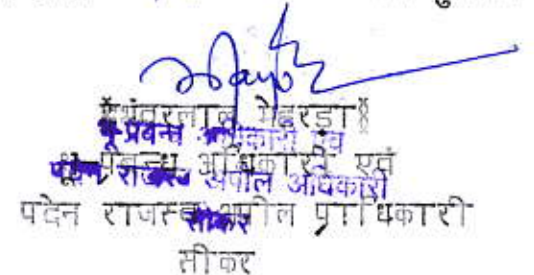 भंवरलाल मेहरडा
भू-प्रबन्ध अधिकारी एवं
भू-प्रबन्ध अधिकारी एवं
पदेन राजस्व अपील अधिकारी
पदेन राजस्व अपील प्राधिकारी
सीकर
सीकर